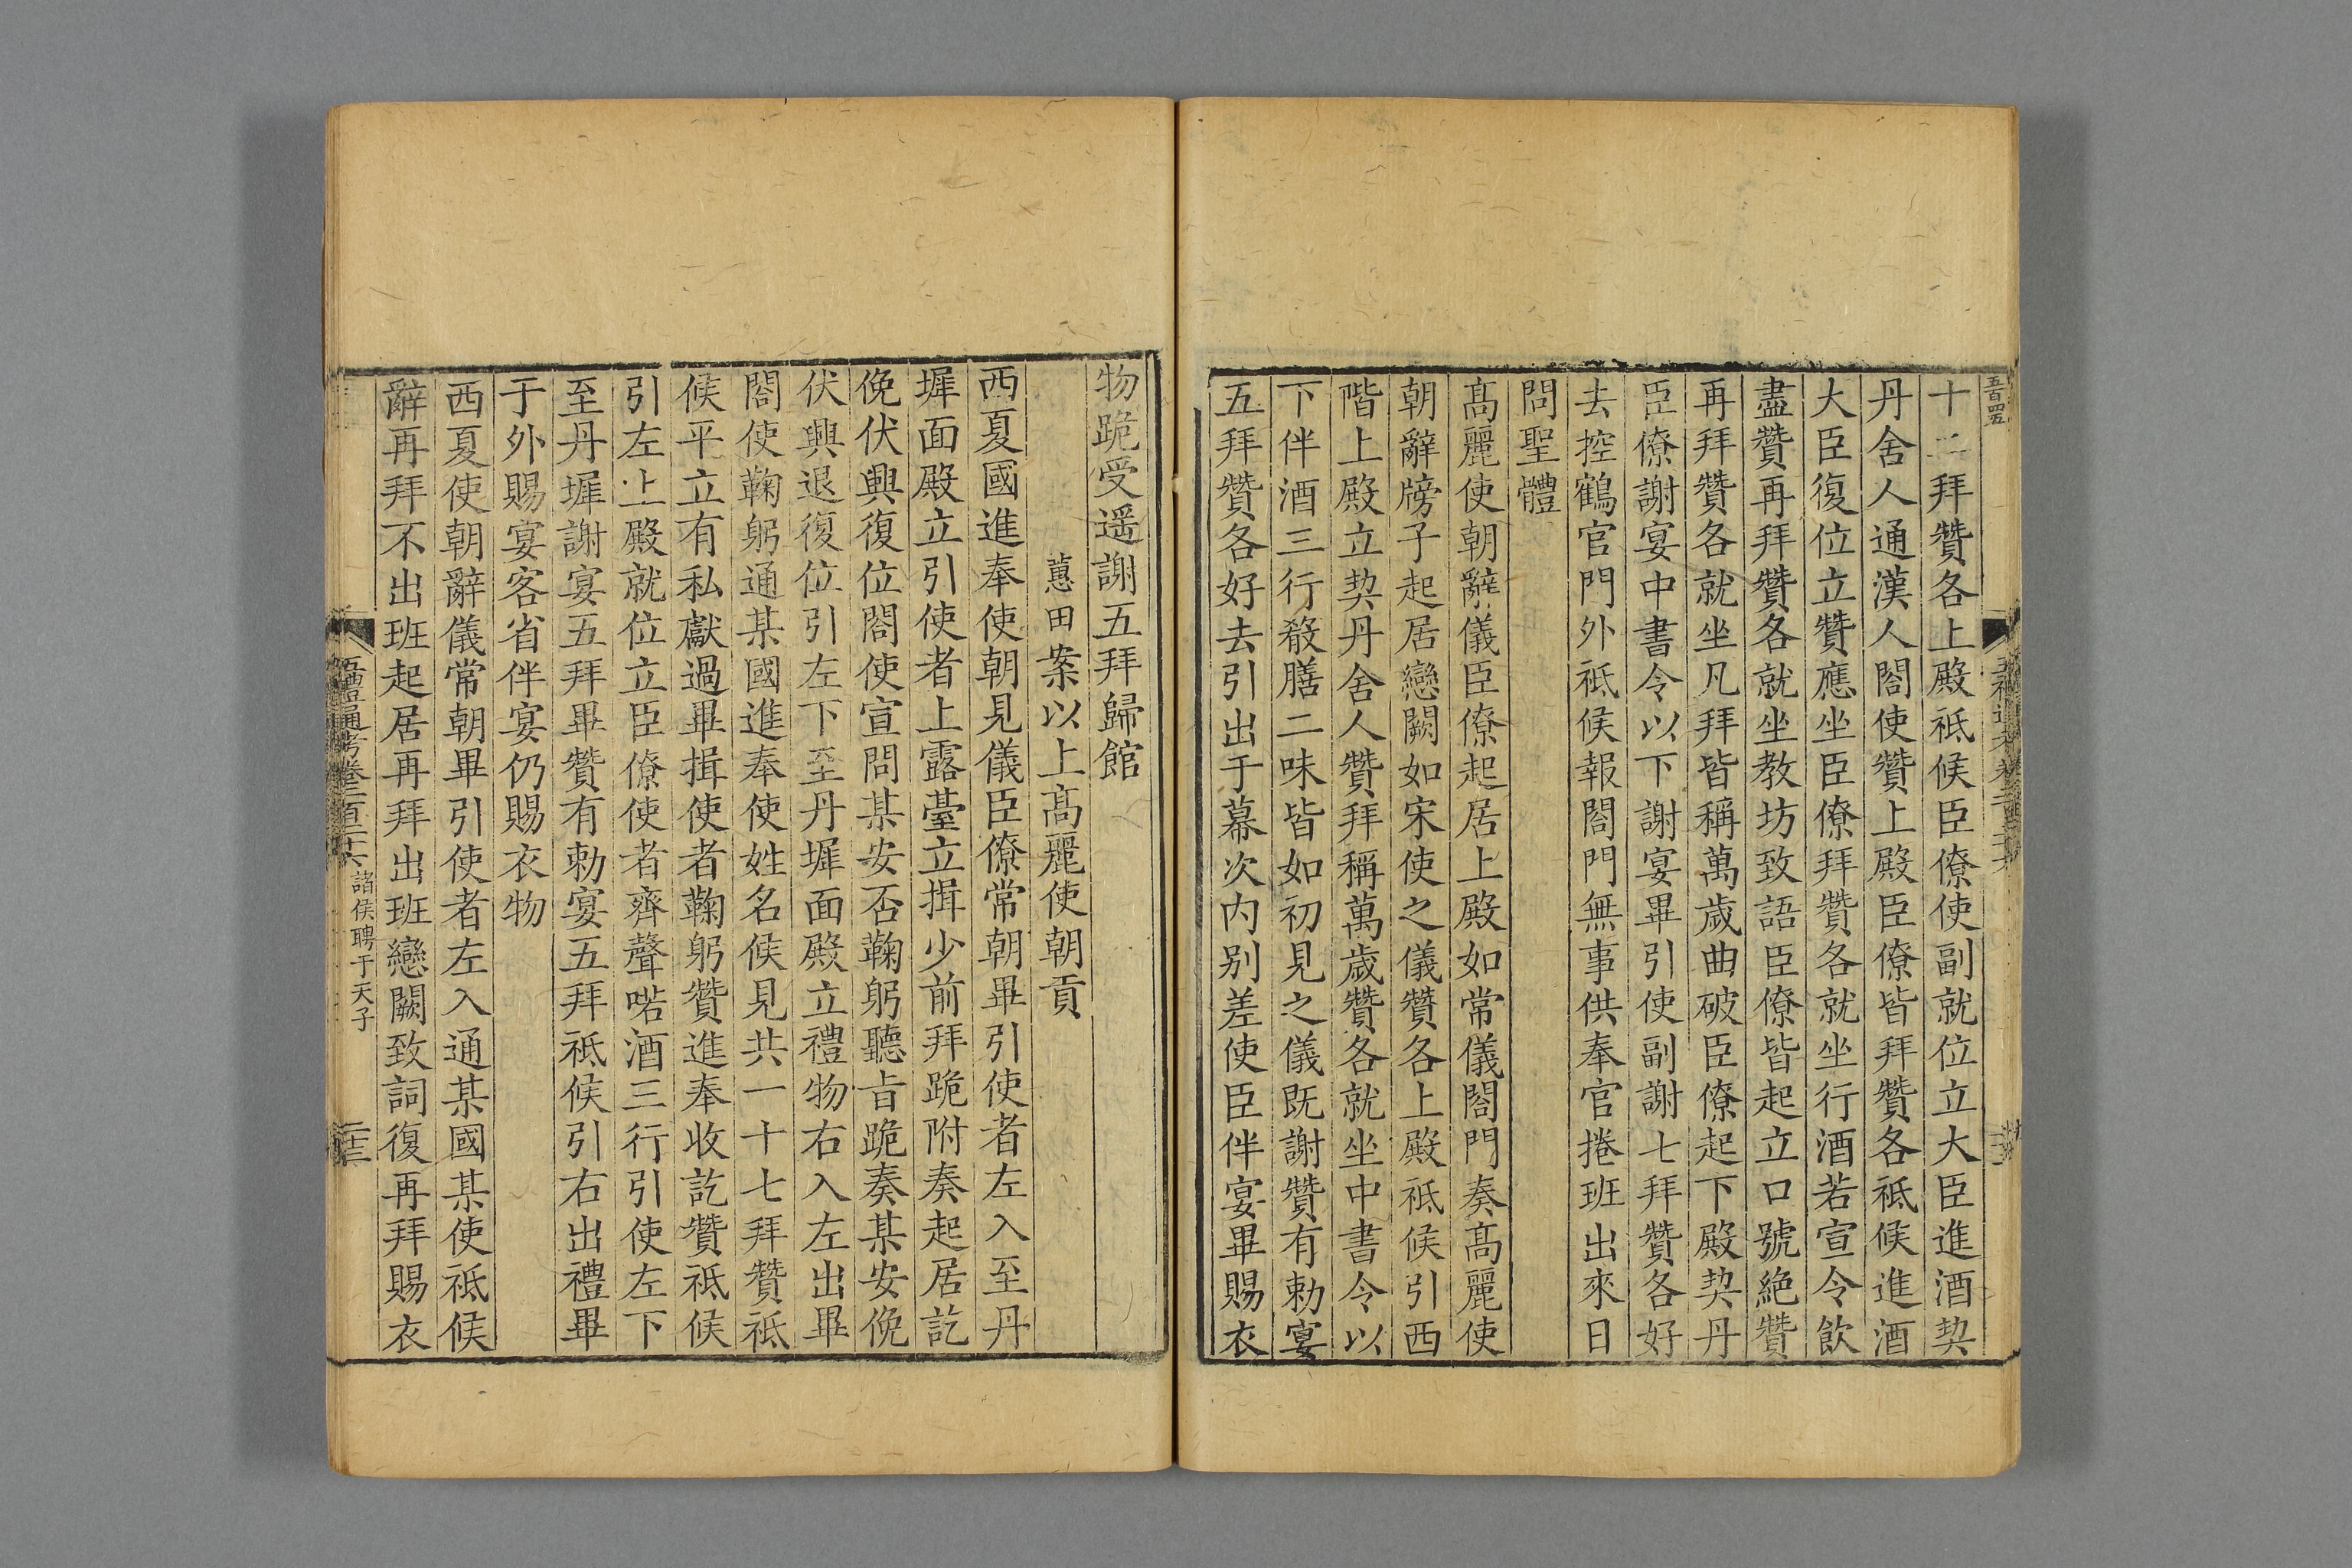 五百四五
十二拜贊各上殿祗候臣僚使副就位立大臣進酒契
丹舍人通漢人閤使贊上殿臣僚皆拜贊各祗候進酒
大臣復位立贊應坐臣僚拜贊各就坐行酒若宣令飲
盡贊再拜贊各就坐教坊致語臣僚皆起立口號絶贊
再拜贊各就坐凡拜皆稱萬歲曲破臣僚起下殿契丹
臣僚謝宴中書令以下謝宴畢引使副謝七拜贊各好
去控鶴官門外祗候報閤門無事供奉官捲班出來日
問聖體
髙麗使朝辭儀臣僚起居上殿如常儀閤門奏髙麗使
朝辭牓子起居戀闕如宋使之儀贊各上殿祗候引西
階上殿立契丹舍人贊拜稱萬歲贊各就坐中書令以
下伴酒三行殽膳二味皆如初見之儀既謝贊有勅宴
五拜贊各好去引出于幕次内别差使臣伴宴畢賜衣
物跪受遥謝五拜歸館
蕙田案以上髙麗使朝貢
西夏國進奉使朝見儀臣僚常朝畢引使者左入至丹
墀面殿立引使者上露臺立揖少前拜跪附奏起居訖
俛伏興復位閤使宣問某安否鞠躬聽旨跪奏某安俛
伏興退復位引左下至丹墀面殿立禮物右入左出畢
閤使鞠躬通某國進奉使姓名候見共一十七拜贊祗
候平立有私獻過畢揖使者鞠躬贊進奉收訖贊祗候
引左上殿就位立臣僚使者齊聲喏酒三行引使左下
至丹墀謝宴五拜畢贊有勅宴五拜祗候引右出禮畢
于外賜宴客省伴宴仍賜衣物
西夏使朝辭儀常朝畢引使者左入通某國某使祗候
辭再拜不出班起居再拜出班戀闕致詞復再拜賜衣
五禮通考卷二百二十六 諸侯聘于天子 二十三